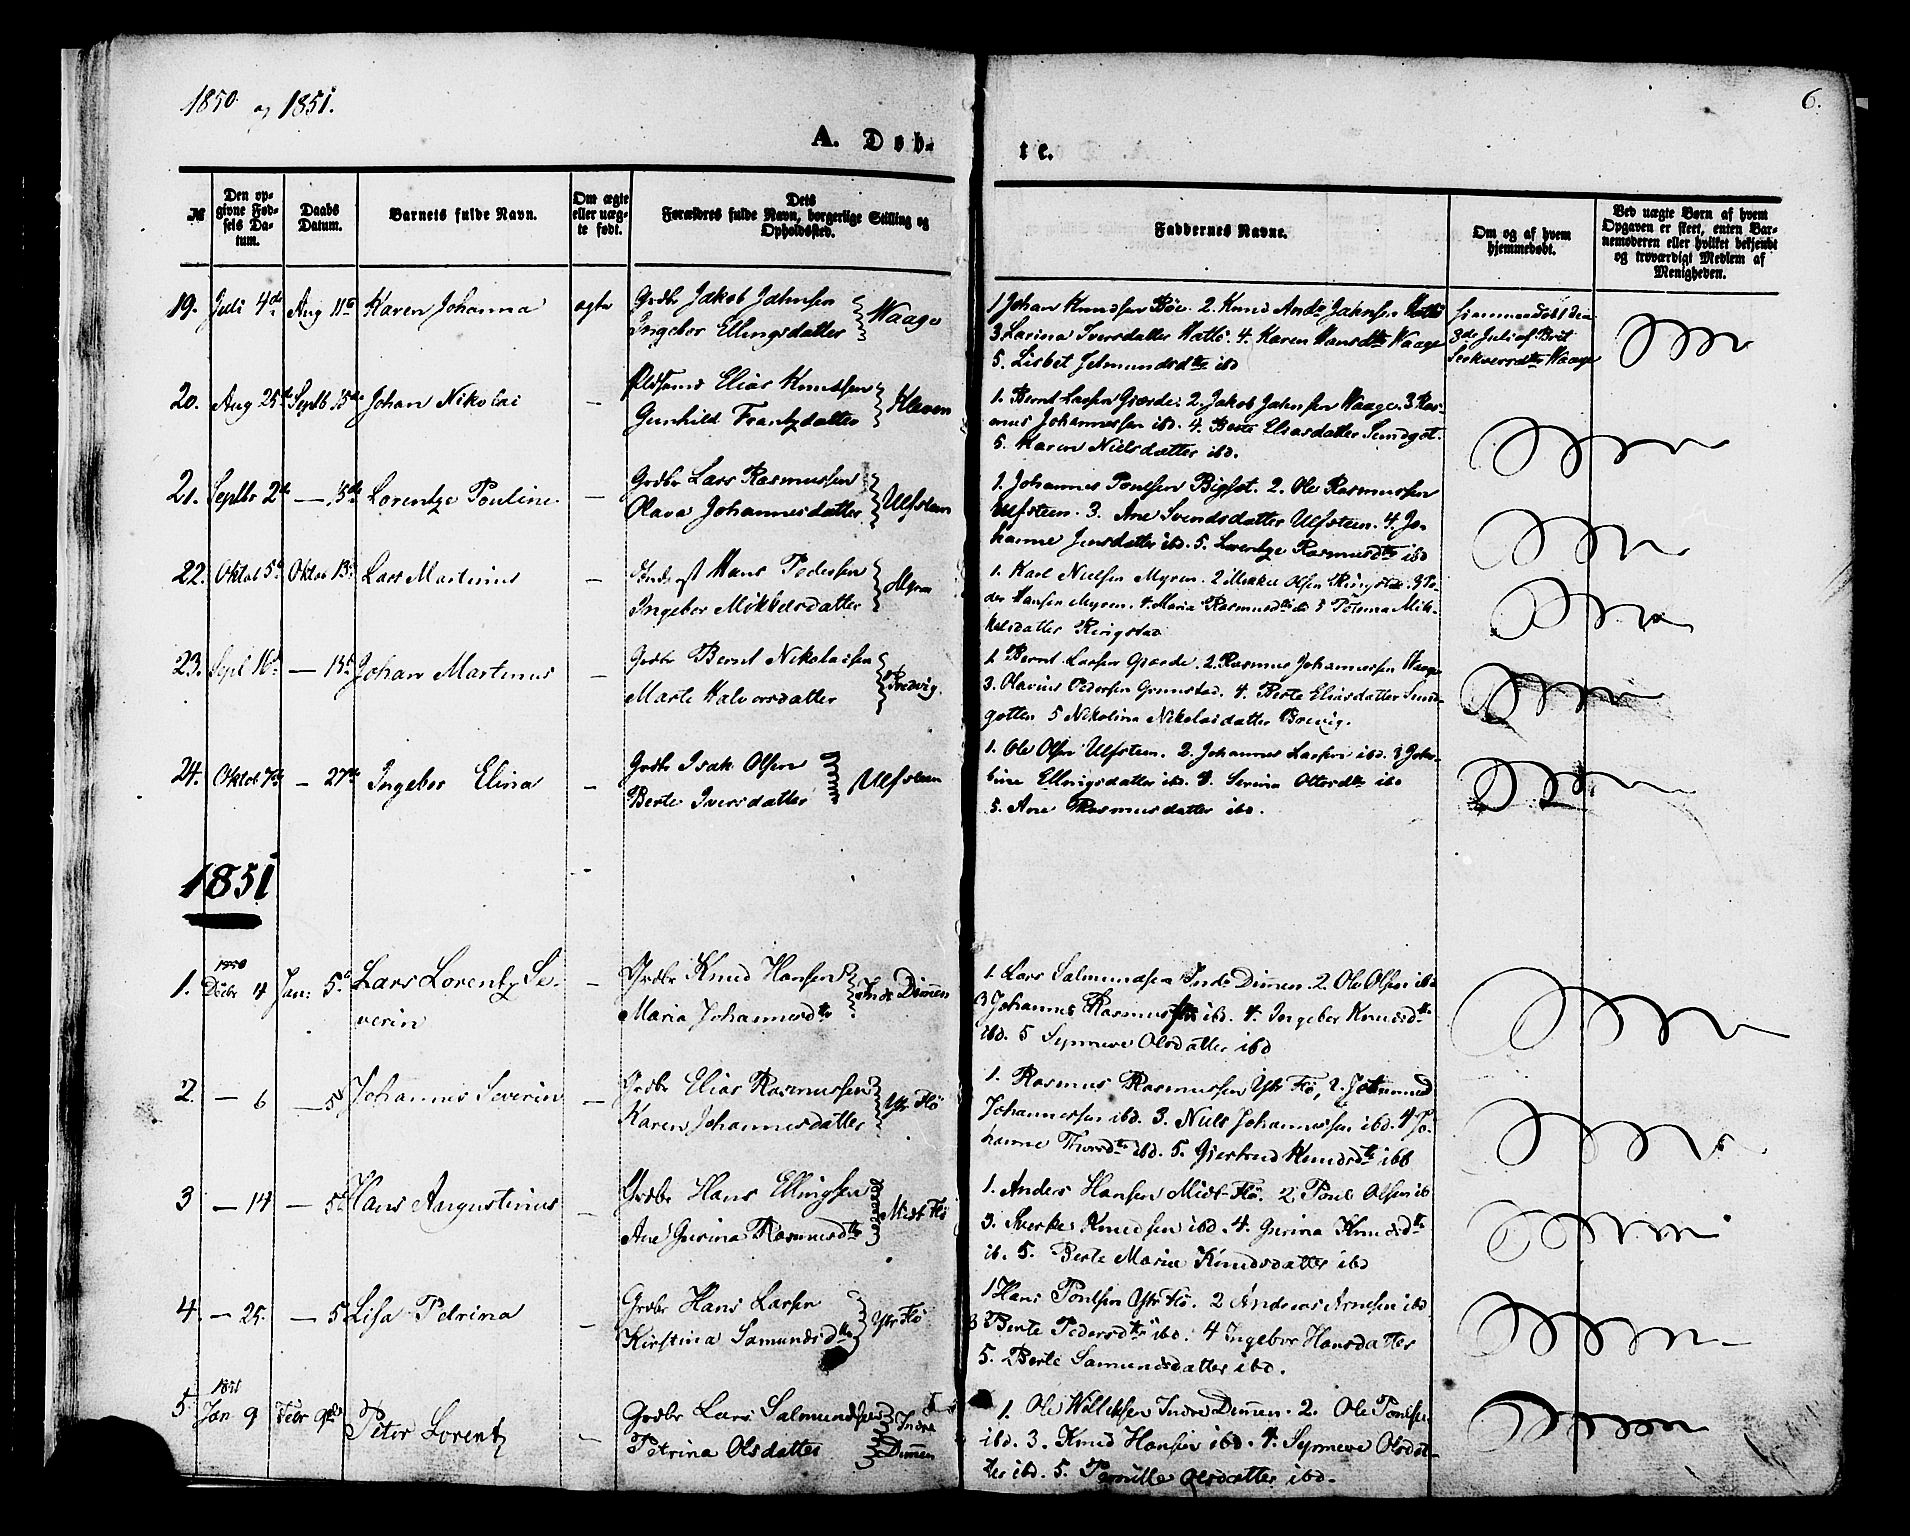 1850 og 1851.
6.
A. Døb-
te.
№
Den opgivne Fødsels Datum.
Daabs Datum.
Barnets fulde Navn.
Om ægte eller uægte født.
Dets Forældres fulde Navn, borgerlige Stilling og Opholdssted.
Faddernes Navne.
Om og af hvem hjemmedøbt.
Ved uægte Børn af hvem Opgaven er skeet, enten Barnemoderen eller hvilket bekjendt og troværdigt Medlem af Menigheden.
19. Juli 4de Aug 11te Karen Johanna ægte Grdbr Jakob Jahnsen
Ingebor Ellingsdatter Waage
1 Johan Knudsen Bøe. 2. Knud Ands Jahnsen Hatlø
3 Larina Iversdatter Hatlø. 4. Karen Hansdtr Waage
5. Lisbet Jetmundsdtr ibd
Hjemmedøbt den
8de Juli af Brit
Waage
20. Aug 25de Septb 15de Johan Nikolai — Elias Knudsen
Gunhild Frantzdatter Kleven
1. Bernt Larsen Gjærde. 2. Jakob Jahnsen Waage. 3 Ras-
mus Johannessen ibd. 4. Berte Eliasdatter Sundgot.
5. Karen Nielsdatter ibd.
21. Septbr 2de — 15de Lorentze Pouline — Grdbr Lars Rasmussen
Olava Johannesdatter Ulfsteen
1. Johannes Poulsen Bigset. 2. Ole Rasmussen
Ulfsteen. 3. Ane Svendsdatter Ulfsteen. 4. Jo-
hanne Jensdatter ibd. 5. Lorentze Rasmusdtr ibd
22. Oktob 5te Oktob 13de Lars Martinus — Hans Pedersen
Ingebor Mikkelsdatter Myren
1. Karl Nielsen Myren. 2 Mikkel Olsen Ringstad. 3 Pe-
der Hansen Myren. 4. Maria Rasmusdtr ibd 5 Petrina Mik-
kelsdatter Ringstad
23. Sept 16de — 13de Johan Martinus — Grdbr Bernt Nikolaisen
Marte Halvorsdatter Bredvig
1. Bernt Larsen Gjærde. 2. Rasmus Johannessen Waage
3. Olavius Pedersen Grimstad. 4. Berte Eliasdatter Sund-
gotten 5 Nikolina Nikolaidatter Boevig.
24. Oktob 7de — 27de Ingebor Elina — Grdbr Isak Olsen
Berte Iversdatter Ulfsteen
1. Ole Olsen Ulfsteen. 2. Johannes Larsen ibd. 3 Jako-
bine Ellingsdatter ibd. 3. Serina Ottersdtr ibd
5. Ane Rasmusdatter ibd.
1851
1850
1. Decbr 4 Jan: 5te Lars Lorentz Se-
verin — Grdbr Knud Hansen
Maria Johannesdtr Indr Dimen
1. Lars Salmundsen Indr Dimen. 2. Ole Olsen ibd
3 Johannes Rasmussen ibd. 4. Ingebor Knudsdtr
ibd. 5 Synneve Olsdatter ibd
2 — 6 — 5te Johannes Severin — Grdbr Elias Rasmussen
Karen Johannesdatter Ytr Flø
1. Rasmus Rasmussen Ytr Flø, 2. Jetmund
Johannessen ibd. 3. Niels Johannessen ibd. 4 Jo-
hanne Thorsdtr ibd. 5. Gjertrud Knudsdtr ibd
3 — 14 — 5te Hans Augustinus — Grdbr Hans Ellingsen
Ane Gurina Rasmusdtr Midt Flø
1. Anders Hansen Midt-Flø. 2 Poul Olsen ib
3. Sverke Knudsen ibd. 4. Gurina Knudsdtr
ib. 5. Berte Marie Knudsdatter ibd
4. — 25. — 5 Lisa Petrina — Grdbr Hans Larsen
Kirstina Samundsdtr Ytr Flø
1 Hans Poulsen Ytr Flø. 2 Andreas Arnesen ibd
3 Berte Pedersdtr ibd. 4 Ingebor Hansdatter
5. Berte Samundsdatter ibd.
1851
5 Jan 9 Febr 9de Peter Lorentz — Grdbr Lars Salmundsen
Petrina Olsdatter Indre Dimen
1. Ole Indre Dimen. 2. Ole Poulsen
ibd. 3. Knud Hansen ibd. 4. Synneve Olsdat-
ter ibd. 5. Pernille Olsdatter ibd.